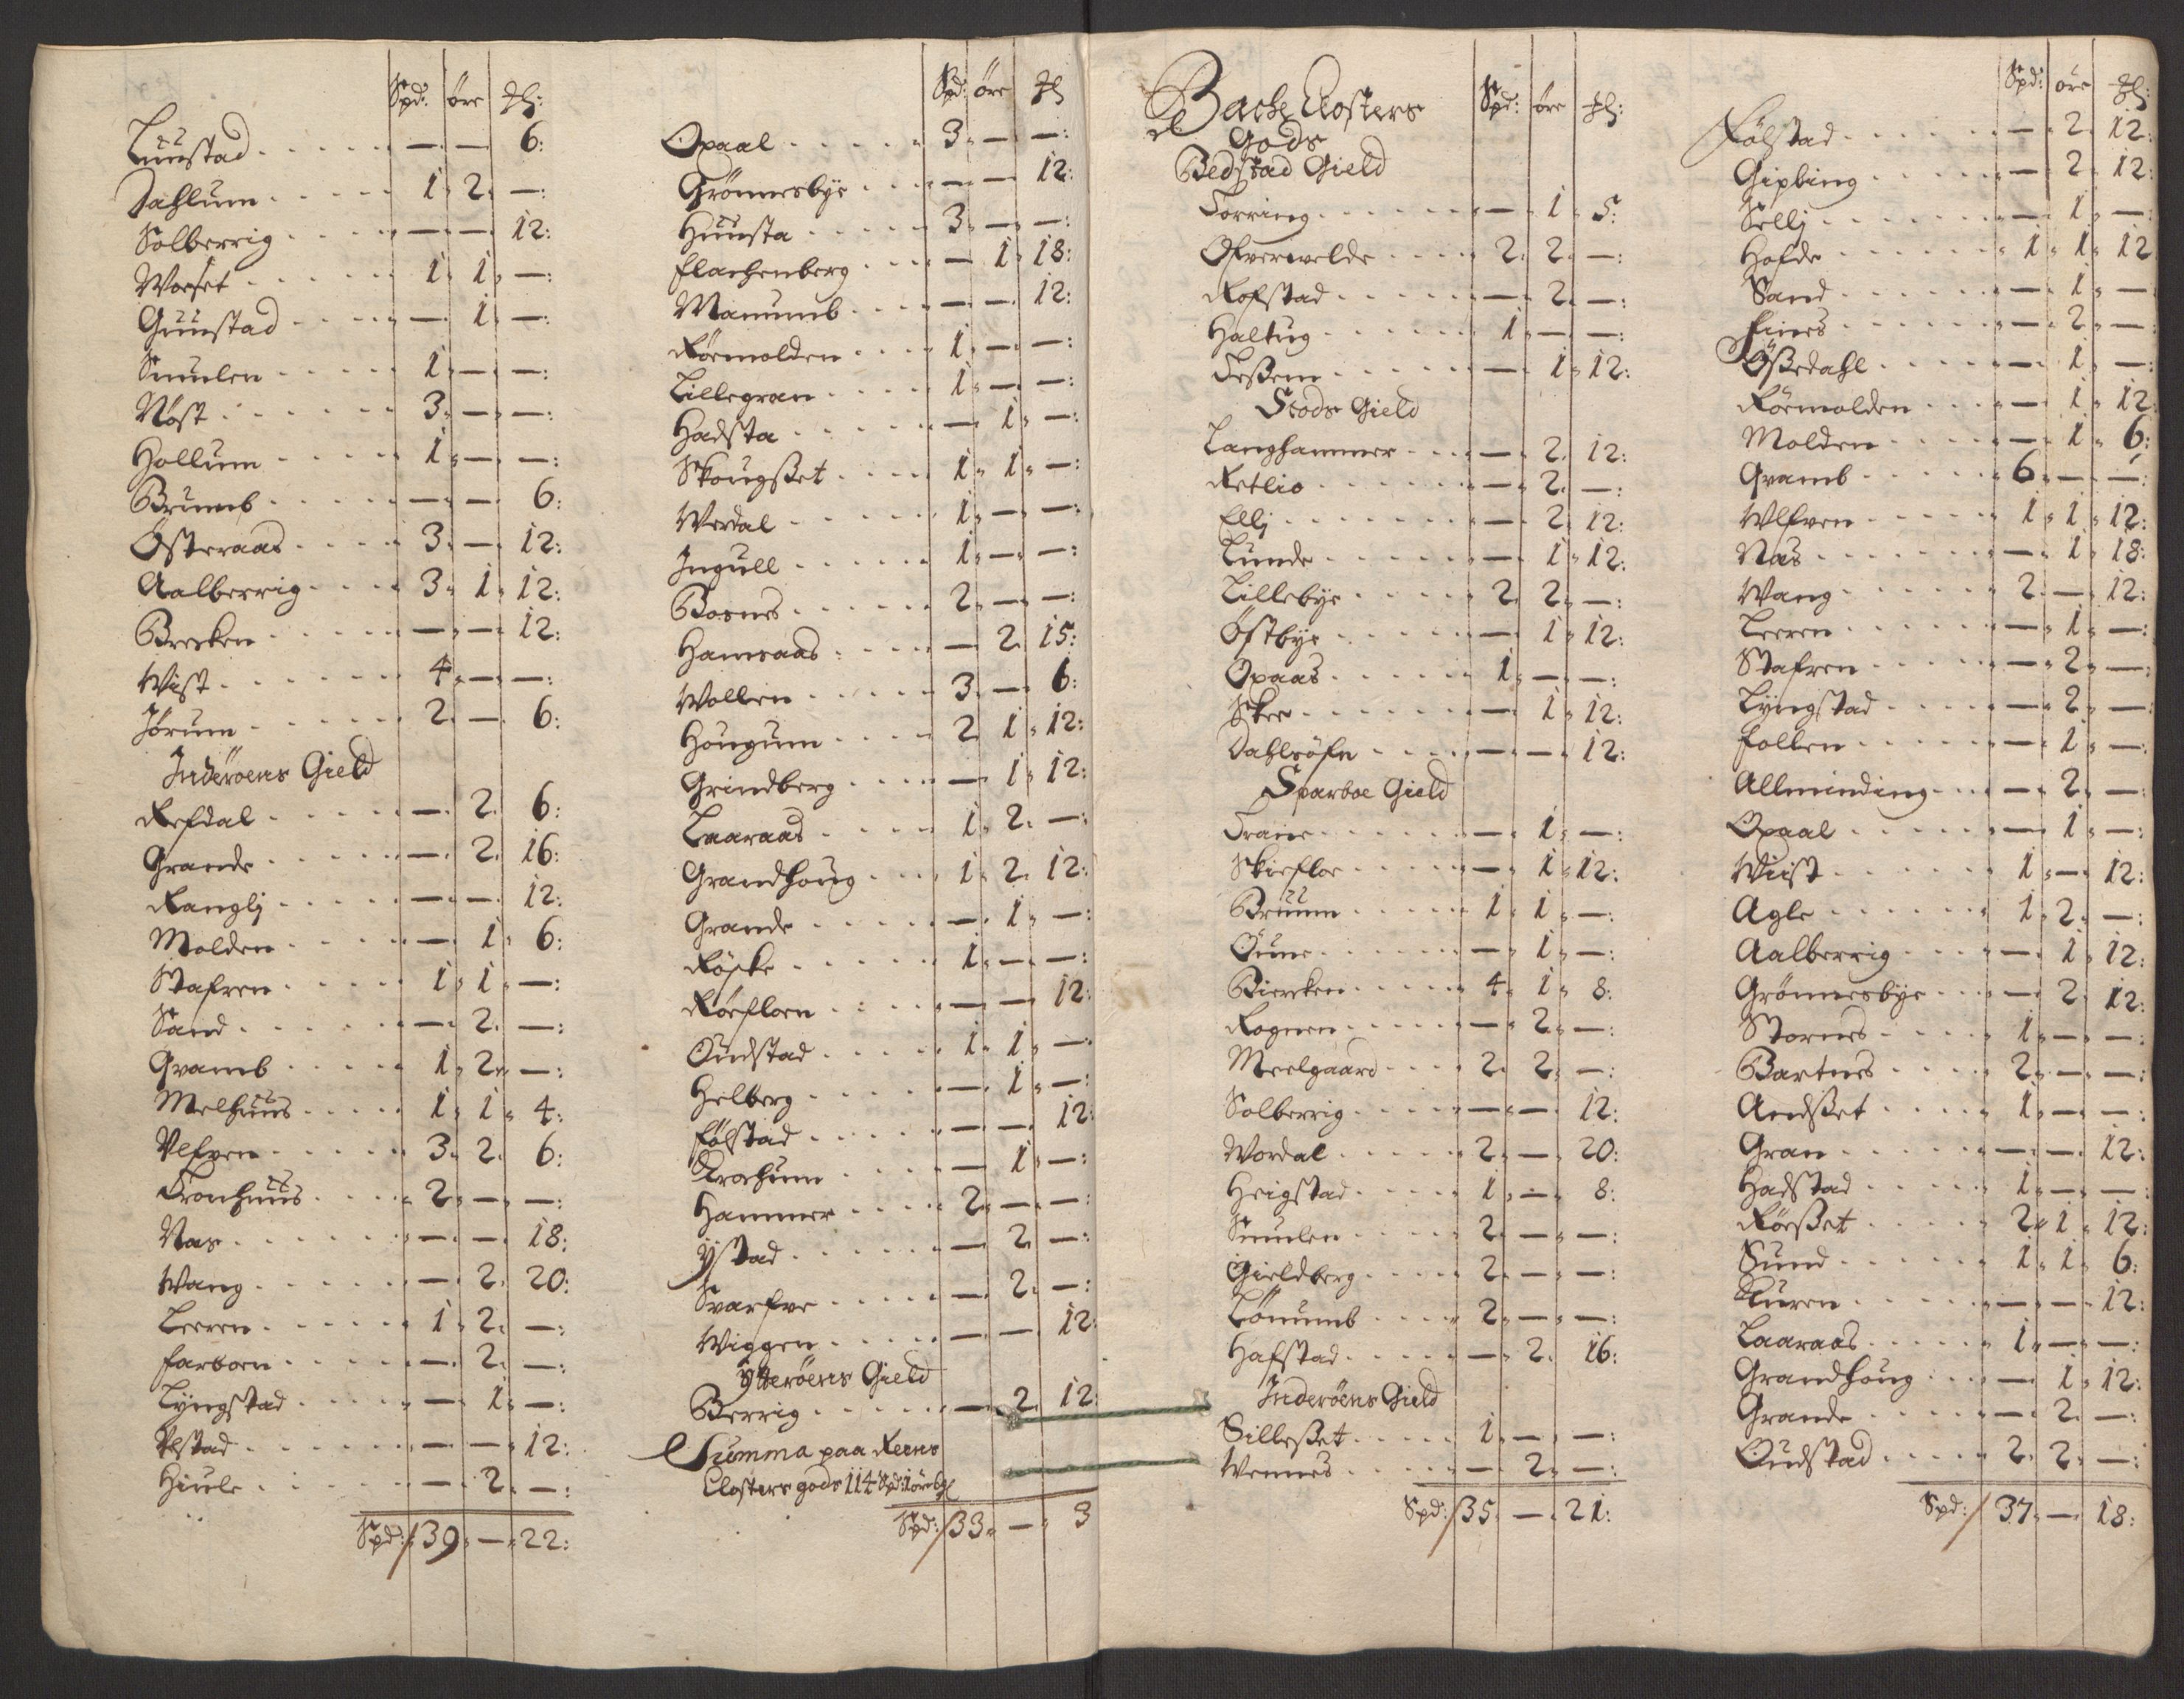 Spd: öre
Luustad — — 6:
Dahlum 1 2 —:
Solberrig — — 12:
Worset 1 1 —:
Guustad — 1 —:
Snuulen 1 — —:
Nöst 3 — —:
Hollum 1 — —:
Brumb — — 6:
Österaas 3 — 12:
Aalberrig 3 1 12:
Brecken — — 12:
Wist 4 — —:
Jörum 2 — 6:
Inderöens Gield
Refdal — 2 6:
Grande — 2 16:
Ranglj — — 12:
Molden — 1 6:
Stafren 1 1 —:
Sand — 2 —:
Gramb 1 2 —:
Melhuus 1 1 4:
Ulfven 3 2 6:
Tronhuus 2 — —:
Nas — — 18:
Wang — 2 20:
Leeren 1 2 —:
Farboen — 2 —:
Lyngstad — 1 —:
Ulstad — — 12:
Hiule — 2 —:
Spd: 39 — 22:
Spd: öre
Opaal 3 — —:
Grönnesbye — — 12:
Huusta 3 — —:
Flachenberg — 1 18:
Manumb — — 12:
Röemolden 1 — —:
Lillegran 1 — —:
Hadsta — 1 —:
Skougßet 1 1 —:
Werdal 1 — —:
Ingull 1 — —:
Bosnes 2 — —:
Hameraas — 2 15:
Wollen 3 — 6:
Hougum 2 1 12:
Grindberg — 1 12:
Laaraas 1 2 —:
Grandhoug 1 2 12:
Grande — 1 —:
Röske 1 — —:
Röefloen — — 12:
Oudstad 1 1 —:
Helberg — 1 —:
Fölstad — — 12:
Krachum — 1 —:
Hammer 2 — —:
Ystad — 2 —:
Svarfve — 2 —:
Wiggen — — 12:
Ytteröens Gield
Berrig — 2 12:
Summa paa Reens
Closters gods 114 Spd: 1 öre
Spd: 33 — 3
Bache Closters Spd: öre
Gods
Bedstad Gield
Torring — 1 5:
Ofverwelde 2 2 —:
Rolstad — 2 —:
Haltug 1 — —:
Teßem — 1 12:
Stods Gield
Langhammer — 2 12:
Retlio — 2 —:
Ellj — 2 12:
Lunde — 1 12:
Lillebye 2 2 —:
Östbye — 1 12:
Opaas 1 — —:
Skee — 1 12:
Dahlsöfn — — 12:
Sparboe Gield
Trane — 1 —:
Skiefloe — 1 12:
Bruum 1 1 —:
Oune — 1 —:
Biercken 4 1 8:
Rognen — 2 —:
Meelgaard 2 2 —:
Solberrig — — 12:
Wordal 2 — 20:
Heigstad 1 — 8:
Snuulen 2 — —:
Gieldberg 2 — —:
Lönumb 2 — —:
Hafstad — 2 16:
Inderöens Gield
Silleßet 1 — —:
Wennes — 2 —:
Spd: 35 — 21:
Spd: öre
Fölstad — 2 12:
Gipling — 2 12:
Sellj — 1 —:
Hofde 1 1 12
Sand — 1 —
Fines — 2 —:
Ößedahl — 1 —:
Röemolden — 1 12
Molden — 1 6:
Gramb 6 — —:
Ulfven 1 1 12:
Nas — 1 18:
Wang 2 — 12:
Leeren — 1 —:
Stafren — 2 —:
Lyngstad — 2 —
Follen — 1 —:
Allminding — 2 —:
Opaal — 1 —:
Wiist 1 — 12:
Agle 1 2 —:
Aalberrig — 1 12:
Grönnesbye — 2 12:
Stornes 1 — —:
Bartnes 2 — —:
Andßet 1 — —:
Gran — — 12:
Hadstad 1 — —:
Röeßet 2 1 12:
Sund 1 1 6:
Kuren — — 12:
Laaraas 1 — —:
Grandhoug — 1 12:
Grande — 2 —:
Oudstad 2 2 —:
Spd: 37 — 18: